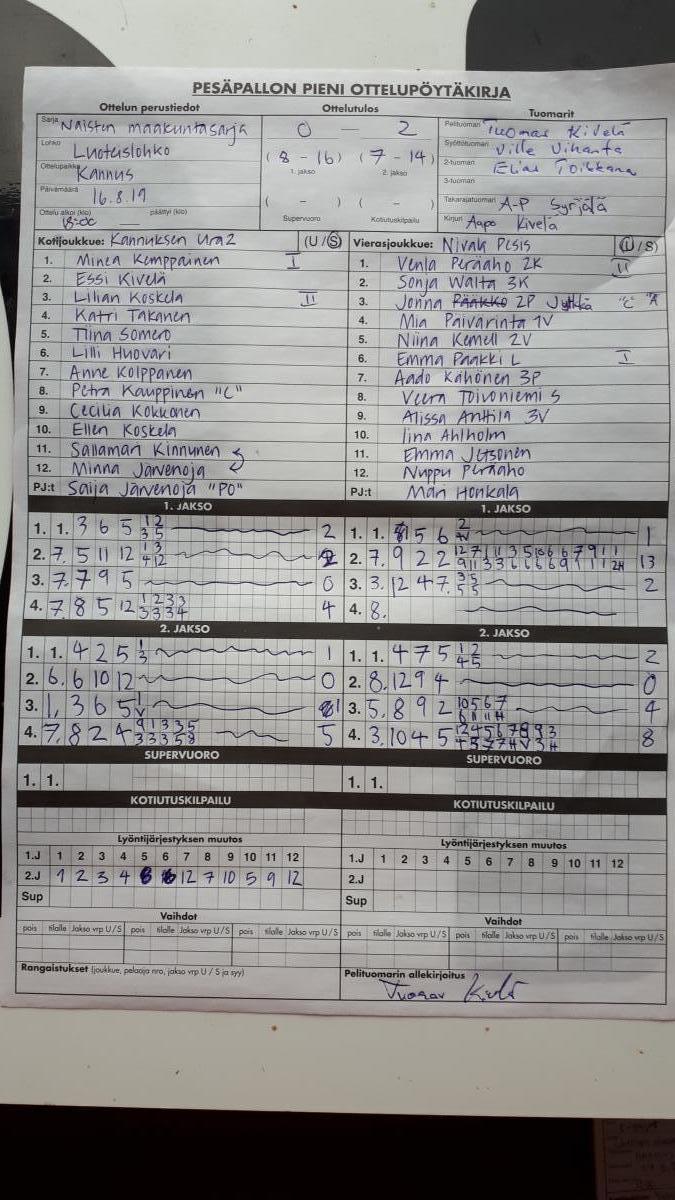 PESÄPALLON PIENI OTTELUPÖYTÄKIRJA
Ottelun perustiedot Ottelutulos Tuomarit
Sarja Naisten maakuntasarja
0 — 2
Pelituomari Tuomas Kivelä
Lohko Luoteislohko
(8 - 16) (7 - 14)
1. jakso 2. jakso
Syöttötuomari Ville Vihanta
Ottelupaikka Kannus
2-tuomari Elias Toikkana
3-tuomari
Päivämäärä 16.8.19
( - ) ( - )
Supervuoro Kotiutuskilpailu
Takarajatuomari A-P Syrjälä
Ottelu alkoi (klo) päättyi (klo)
Kirjuri Aapo Kivelä
Kotijoukkue: Kannuksen Ura2 (U/S)
1. Minea Kemppainen I
2. Essi Kivelä
3. Lilian Koskela II
4. Katri Takanen
5. Tiina Somero
6. Lilli Huovari
7. Anne Kolppanen
8. Petra Kauppinen "C"
9. Cecilia Kokkonen
10. Ellen Koskela
11. Sallamari Kinnunen
12. Minna Järvenoja
PJ:t Saija Järvenoja "PO"
Vierasjoukkue: Nivala Pesis (U/S)
1. Venla Peräaho 2K II
2. Sonja Walta 3K
3. Jonna Pääkkö 2P Jylkkä "C"
4. Mia Päivärinta 1V
5. Niina Kemell 2V
6. Emma Paakki L I
7. Aado Kähönen 3P
8. Veera Toivoniemi S
9. Alissa Anttila 3V
10. Iina Ahlholm
11. Emma
12. Nuppu Peräaho
PJ:t Mari Honkala
1. JAKSO
1. 1. 3 6 5 1 2 2
3 5
2. 7. 5 11 12 1 3 2
4 12
3. 7. 7 9 5 0
4. 7. 8 5 12 1 2 3 3 4
3 3 3 4
1. JAKSO
1. 1. 5 6 1
2. 7. 9 2 2 13
3. 3. 12 4 7 3 5 2
5 5
4. 8.
2. JAKSO
1. 1. 4 2 5 1 1
3
2. 6. 6 10 12 0
3. 1. 3 6 5 1
4. 7. 8 2 4 9 1 3 3 5 5
3 3 3 5 8
2. JAKSO
1. 1. 4 7 5 1 2 2
4 5
2. 8. 12 9 4 0
3. 5. 8 9 2 10 5 6 7 4
4. 3. 10 4 5 8
SUPERVUORO
1. 1.
SUPERVUORO
1. 1.
KOTIUTUSKILPAILU
KOTIUTUSKILPAILU
Lyöntijärjestyksen muutos
1.J 1 2 3 4 5 6 7 8 9 10 11 12
2.J 1 2 3 4 12 7 10 5 9 12
Sup
Lyöntijärjestyksen muutos
1.J 1 2 3 4 5 6 7 8 9 10 11 12
2.J
Sup
Vaihdot
pois tilalle Jakso vrp U/S pois tilalle Jakso vrp U/S pois tilalle Jakso vrp U/S
Vaihdot
pois tilalle Jakso vrp U/S pois tilalle Jakso vrp U/S pois tilalle Jakso vrp U/S
Rangaistukset (joukkue, pelaaja nro, jakso vrp U / S ja syy)
Pelituomarin allekirjoitus